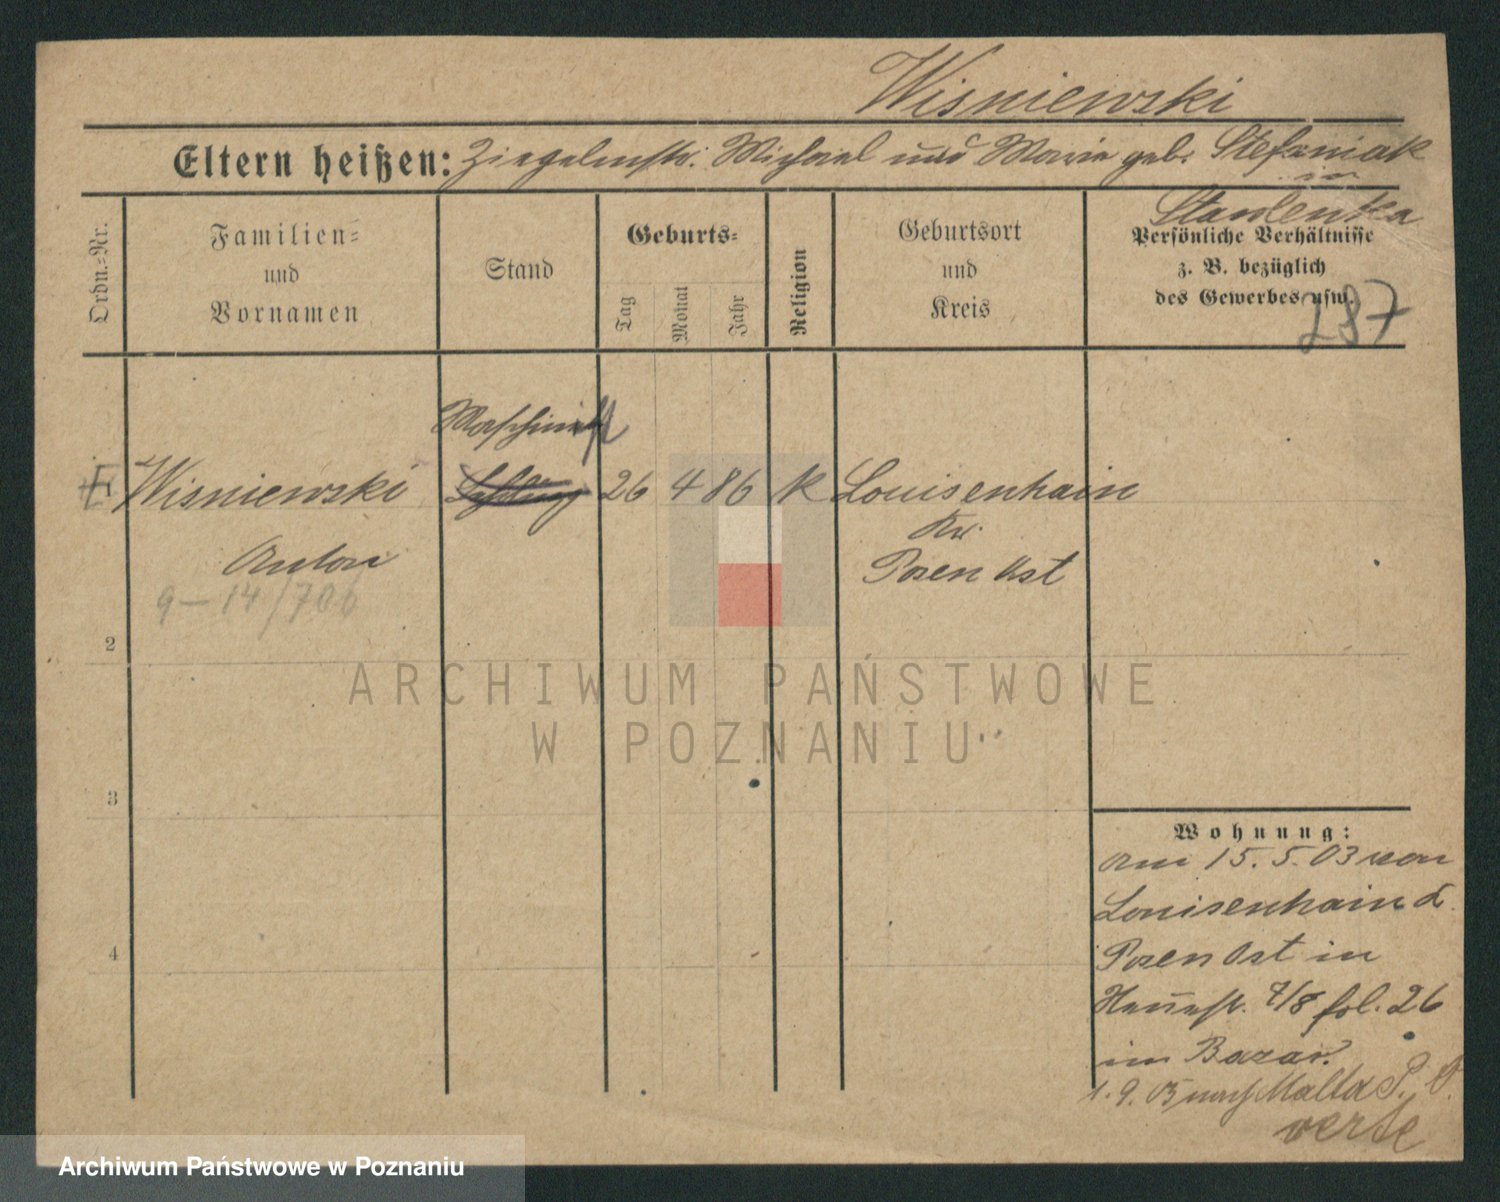 Wisniewski
Eltern heißen: Ziegelmstr. Michael und Marie geb. Stefaniak
in
Stavlenka
Ordn.-Nr.
Familien-
und
Vornamen
Stand
Geburts-
Tag
Monat
Jahr
Religion
Geburtsort
und
Kreis
Persönliche Verhältnisse
z. B. bezüglich
des Gewerbes usw.
287
Maschinist
Wisniewski
Lehrling
26 4 86 K Louisenhain
Kr.
Anton
Posen Ost
9-14/706
2
ARCHIWUM PAŃSTWOWE
W POZNANIU
3
Wohnung:
am 15.5.03 von
Louisenhain
4
Posen Ost in
7/8 fol. 26
im Bazar.
1.9.05 nach Malta P. O.
verte
Archiwum Państwowe w Poznaniu